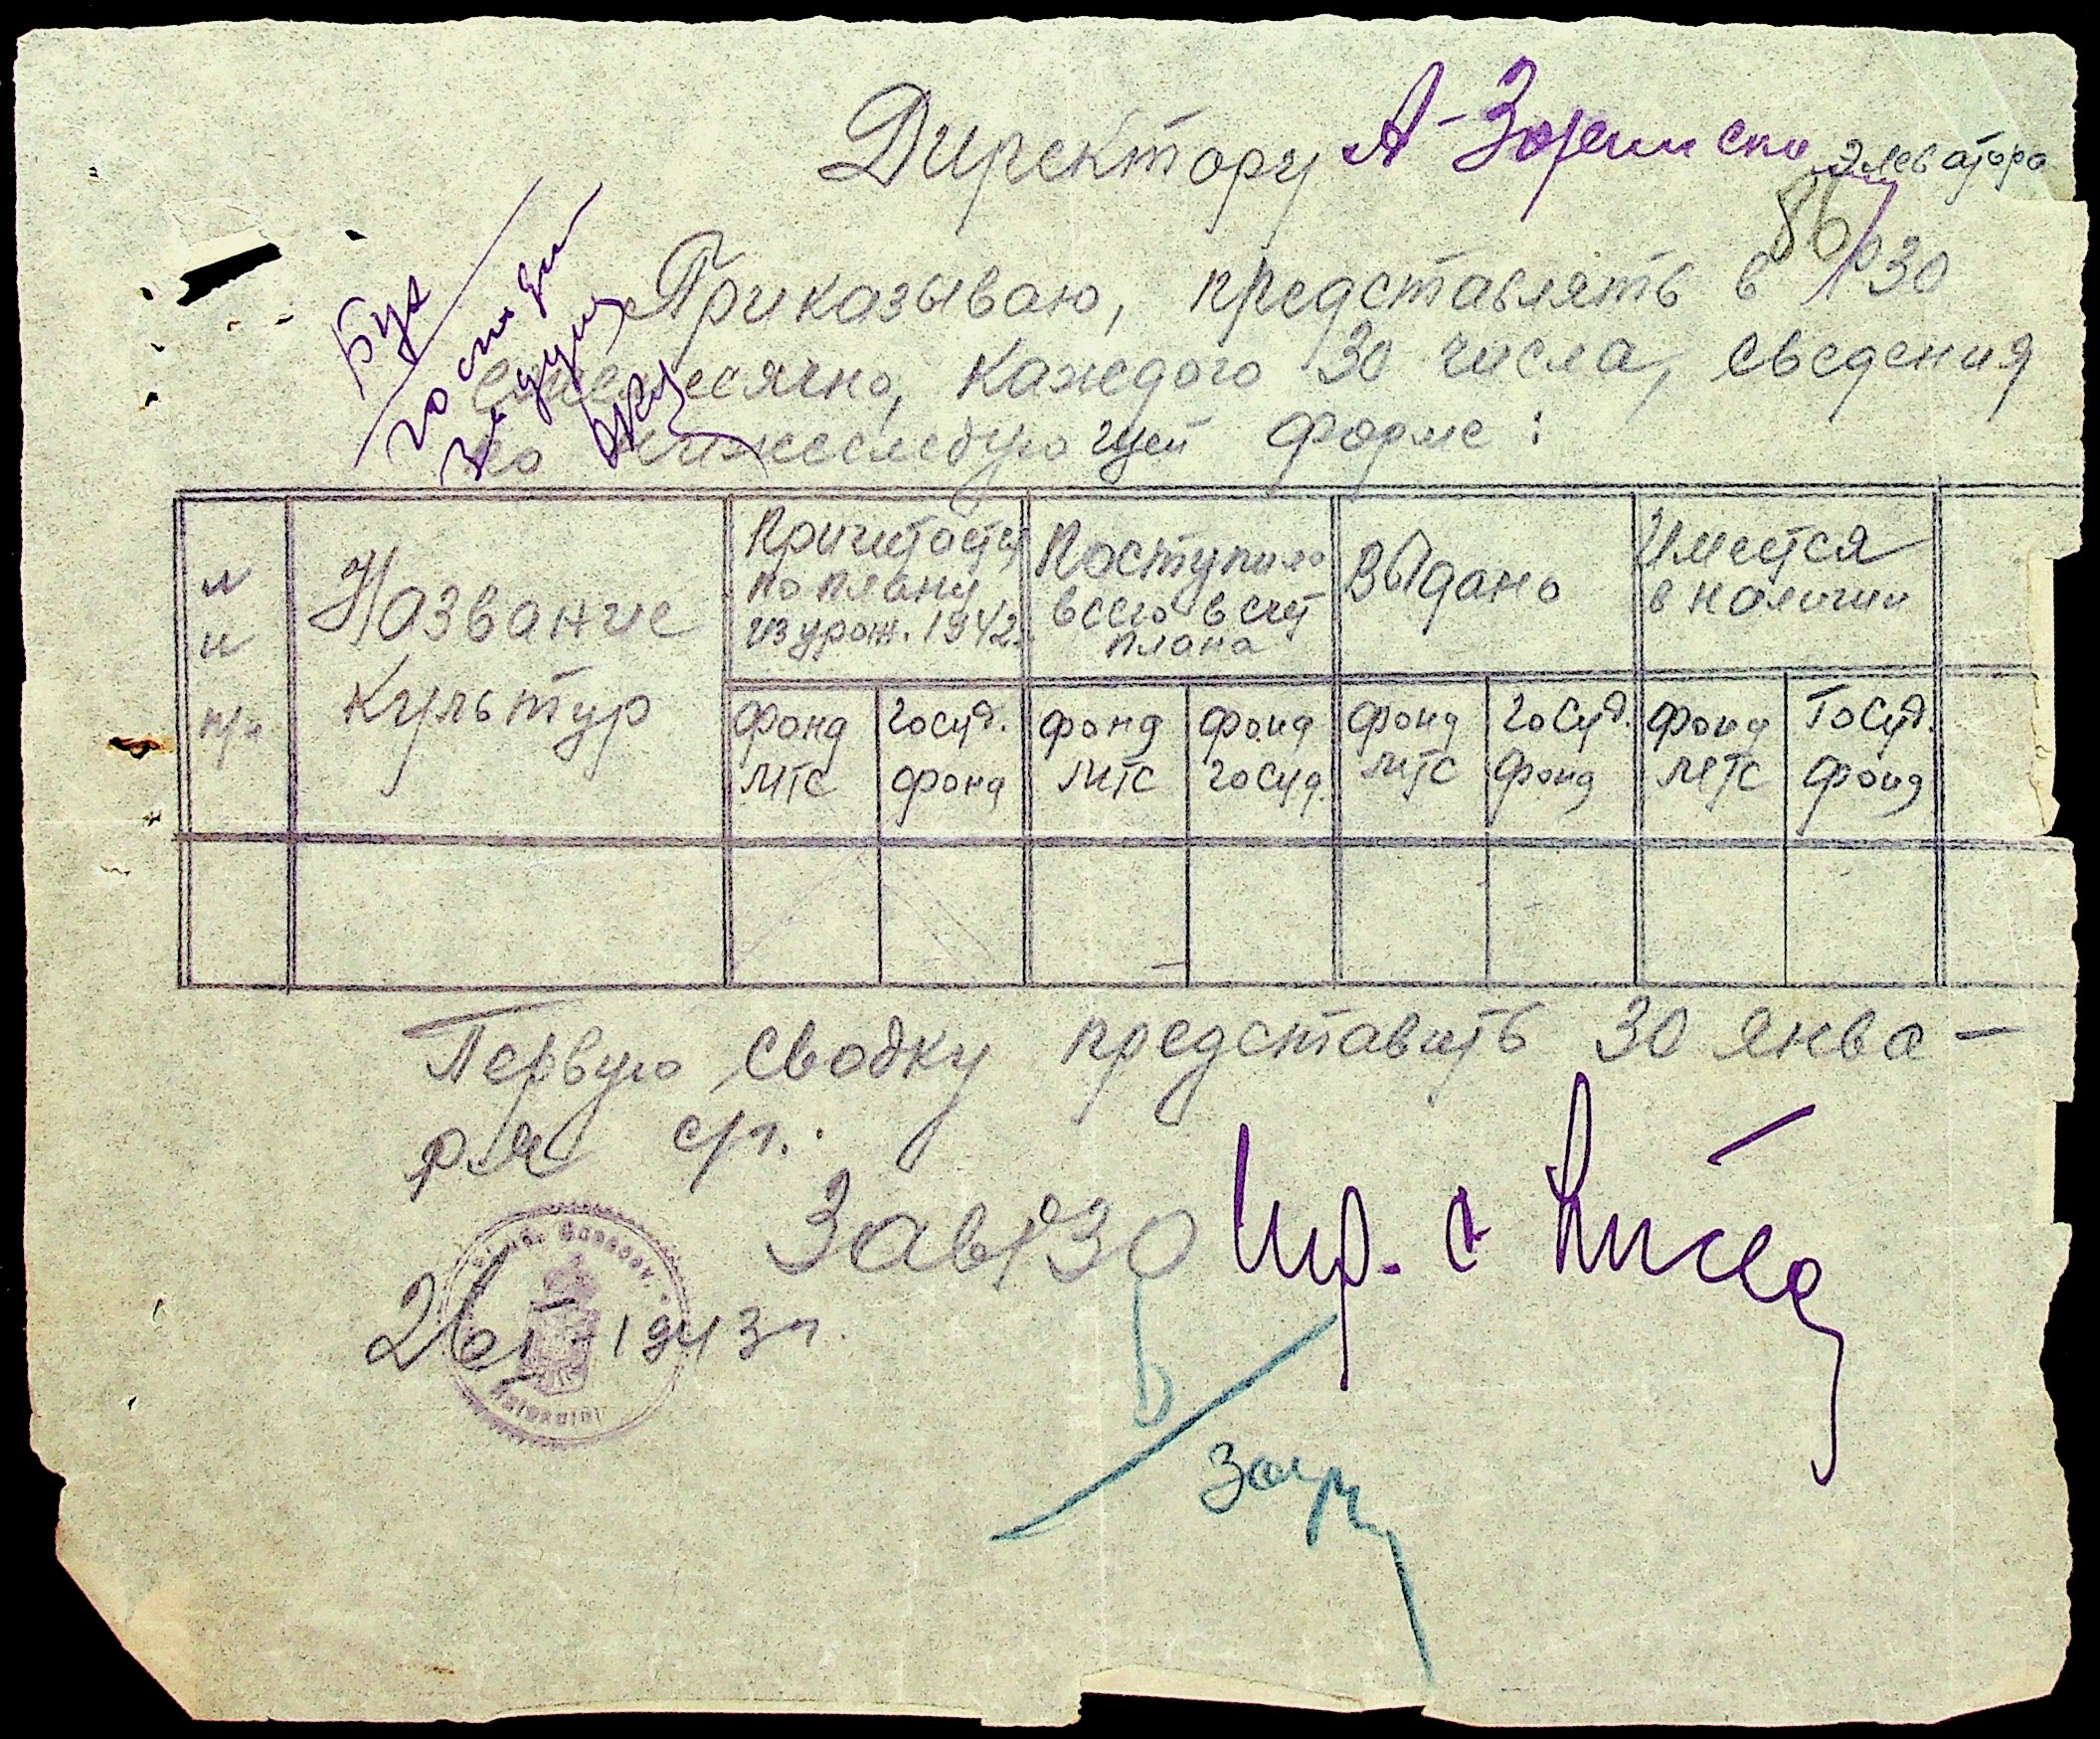 Директору А-Зор элеватора
86
Приказываю, представлять в РЗО
ежемесячно, каждого 30 числа, сведения
по нижеследующей форме:
Название культур
Причитается по плану из урож. 1942г.
Поступило всего в счет плана
Выдано
Имеется в наличии
п/п
фонд МТС
госуд. фонд
фонд МТС
фонд госуд.
фонд МТС
госуд. фонд
фонд МТС
Госуд. фонд
Первую сводку представить 30 янва-
ря с/г.
Зав РЗО
26/I-1943г.